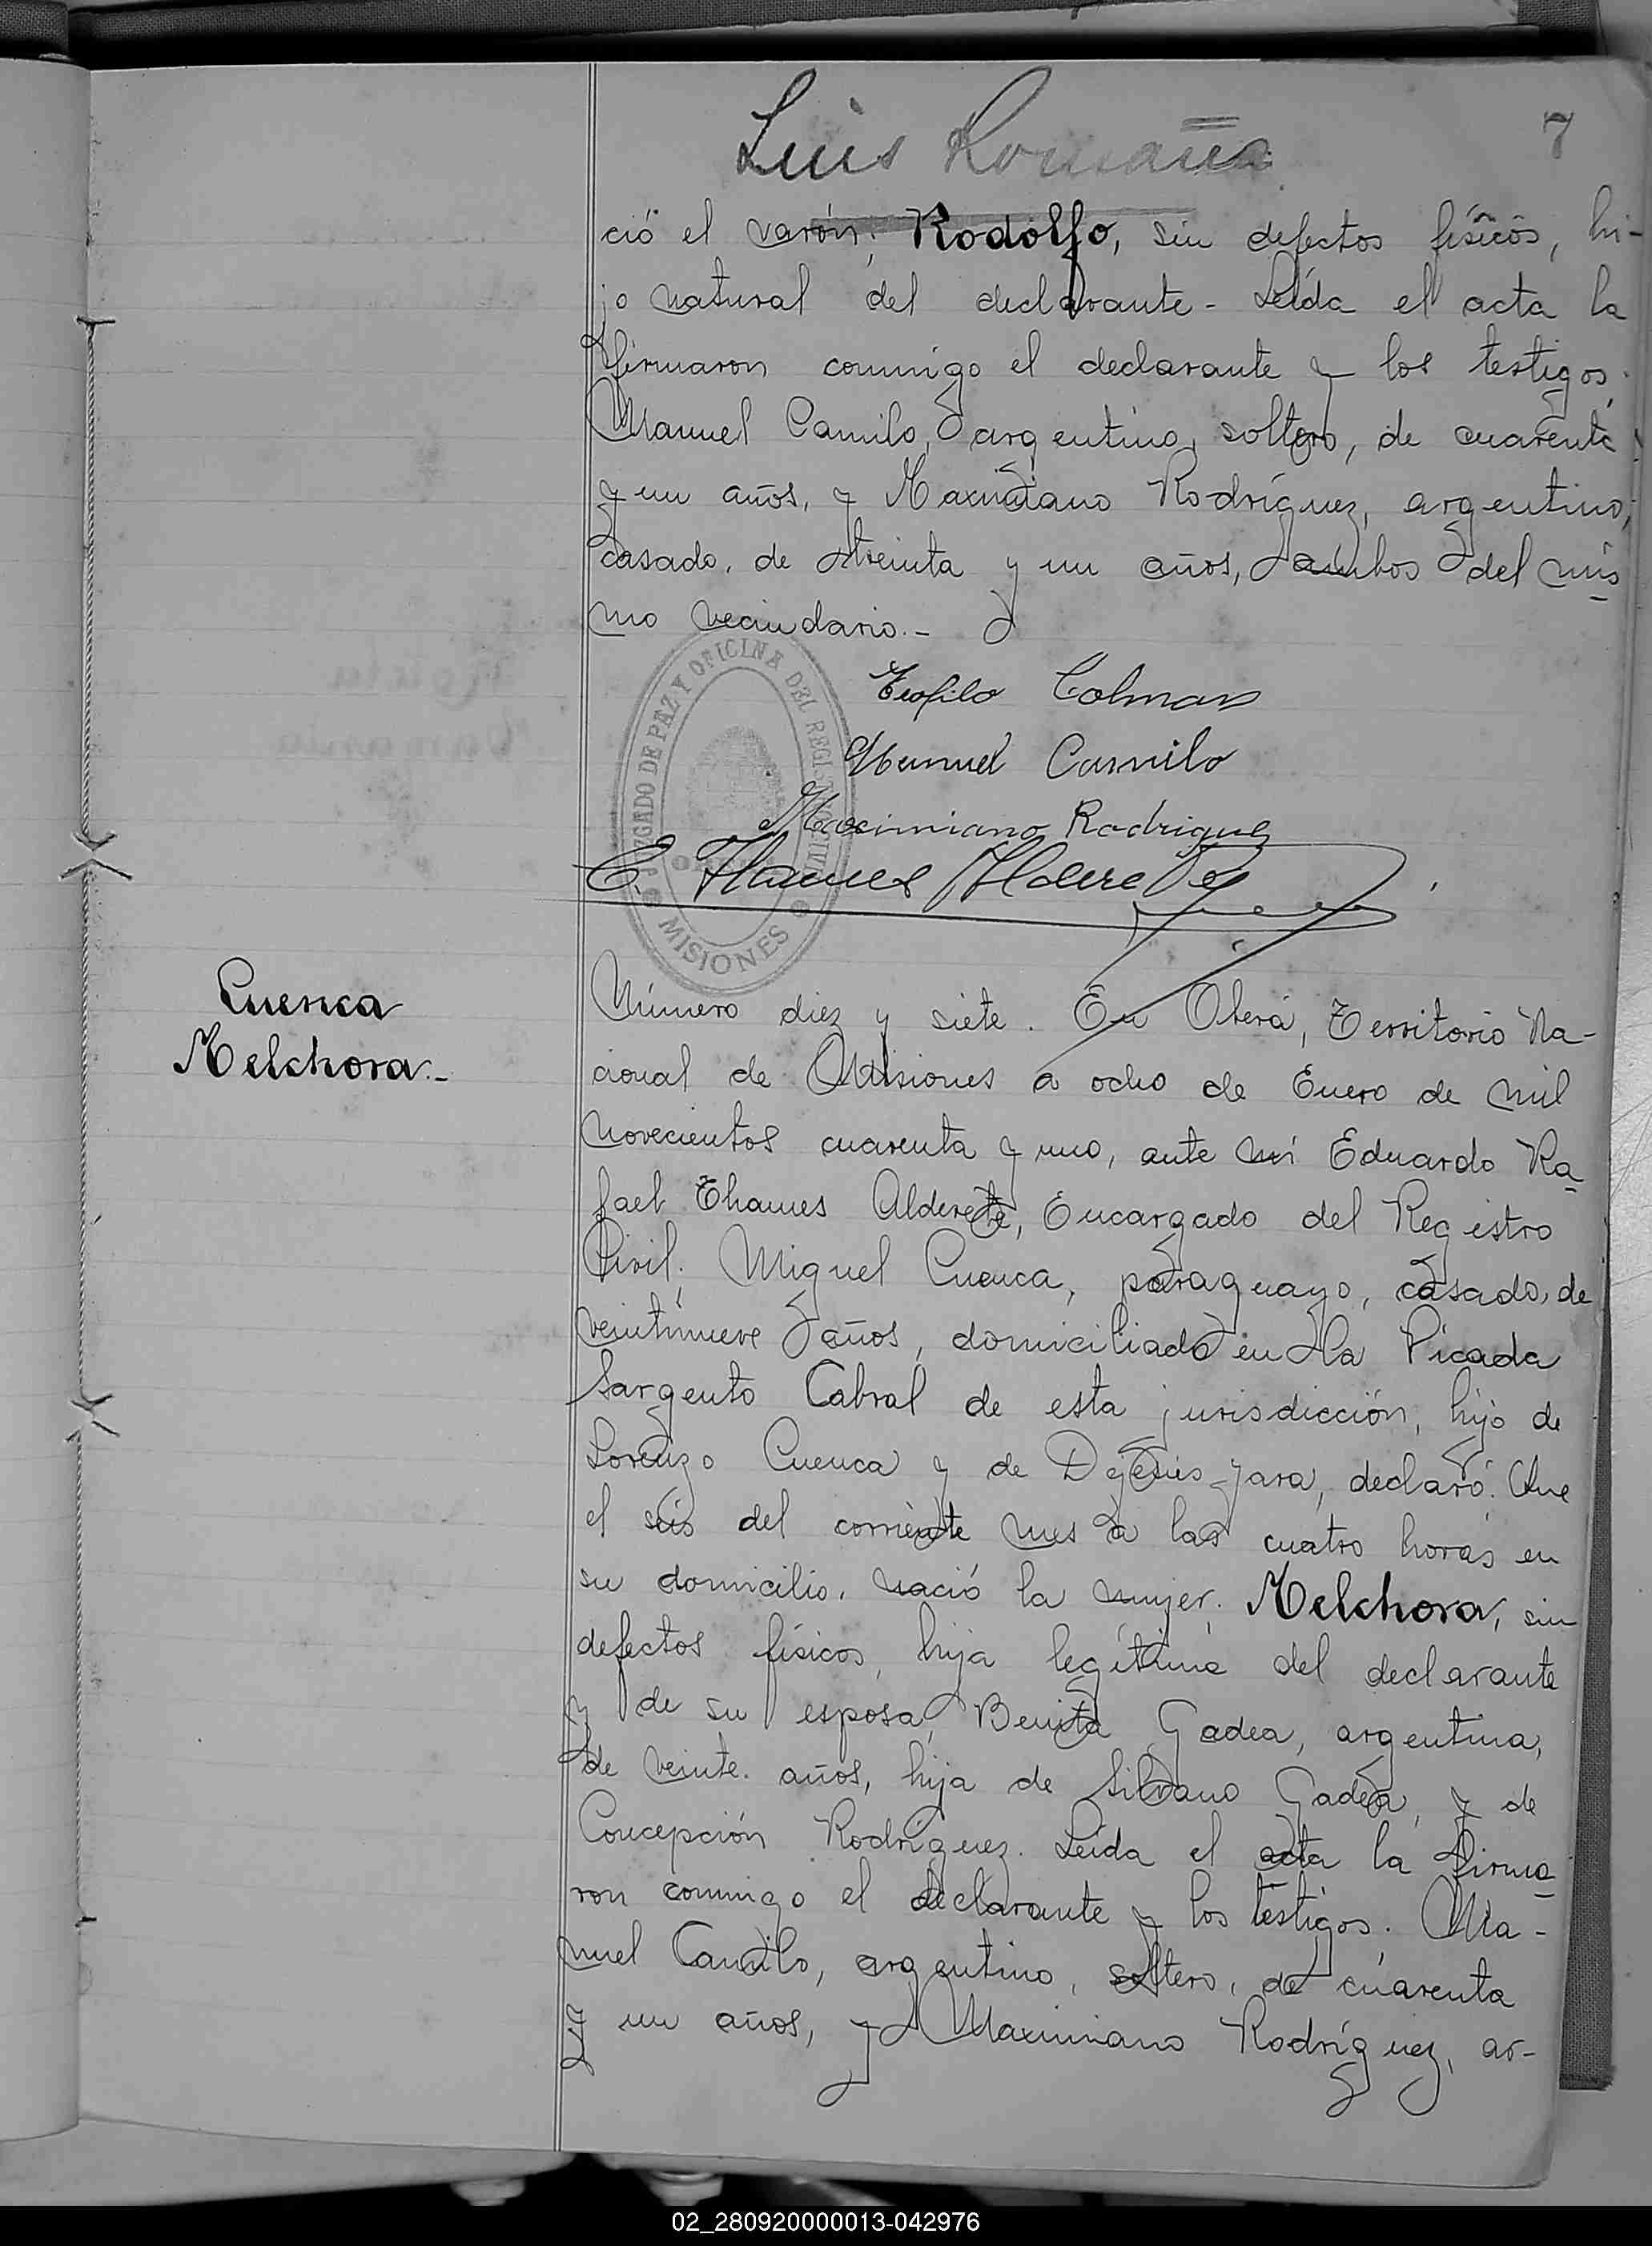 Luis Romaña
7
ció el varón, Rodolfo, sin defectos físicos, hi-
jo natural del declarante - Leída el acta la
firmaron conmigo el declarante y los testigos.
Manuel Camilo, argentino, soltero, de cuarenta
y un años, y Maximiano Rodríguez, argentino,
casado, de treinta y un años, ambos del mis
mo vecindario.-
JUZGADO DE PAZ Y OFICINA DEL REGISTRO CIVIL
MISIONES
Teofilo Colman
Manuel Camilo
Maximiano Rodriguez
E. Thames Alderete
Cuenca
Melchora.-
Número diez y siete. En Oberá, Territorio Na-
cional de Misiones a ocho de Enero de mil
novecientos cuarenta y uno, ante mí Eduardo Ra
fael Thames Alderete, Encargado del Registro
Civil; Miguel Cuenca, paraguayo, casado, de
veintinueve años, domiciliado en la Picada
Sargento Cabral de esta jurisdicción, hijo de
Lorenzo Cuenca y de Dejesús Jara, declaró: Que
el seis del corriente mes a las cuatro horas en
su domicilio, nació la mujer, Melchora, sin
defectos físicos, hija legítima del declarante
y de su esposa, Benita Gadea, argentina,
de veinte años, hija de Silvano Gadea, y de
Concepción Rodríguez. Leída el acta la firma
ron conmigo el declarante y los testigos. Ma-
nuel Camilo, argentino, soltero, de cuarenta
y un años, y Maximiano Rodríguez, ar-
02_280920000013-042976